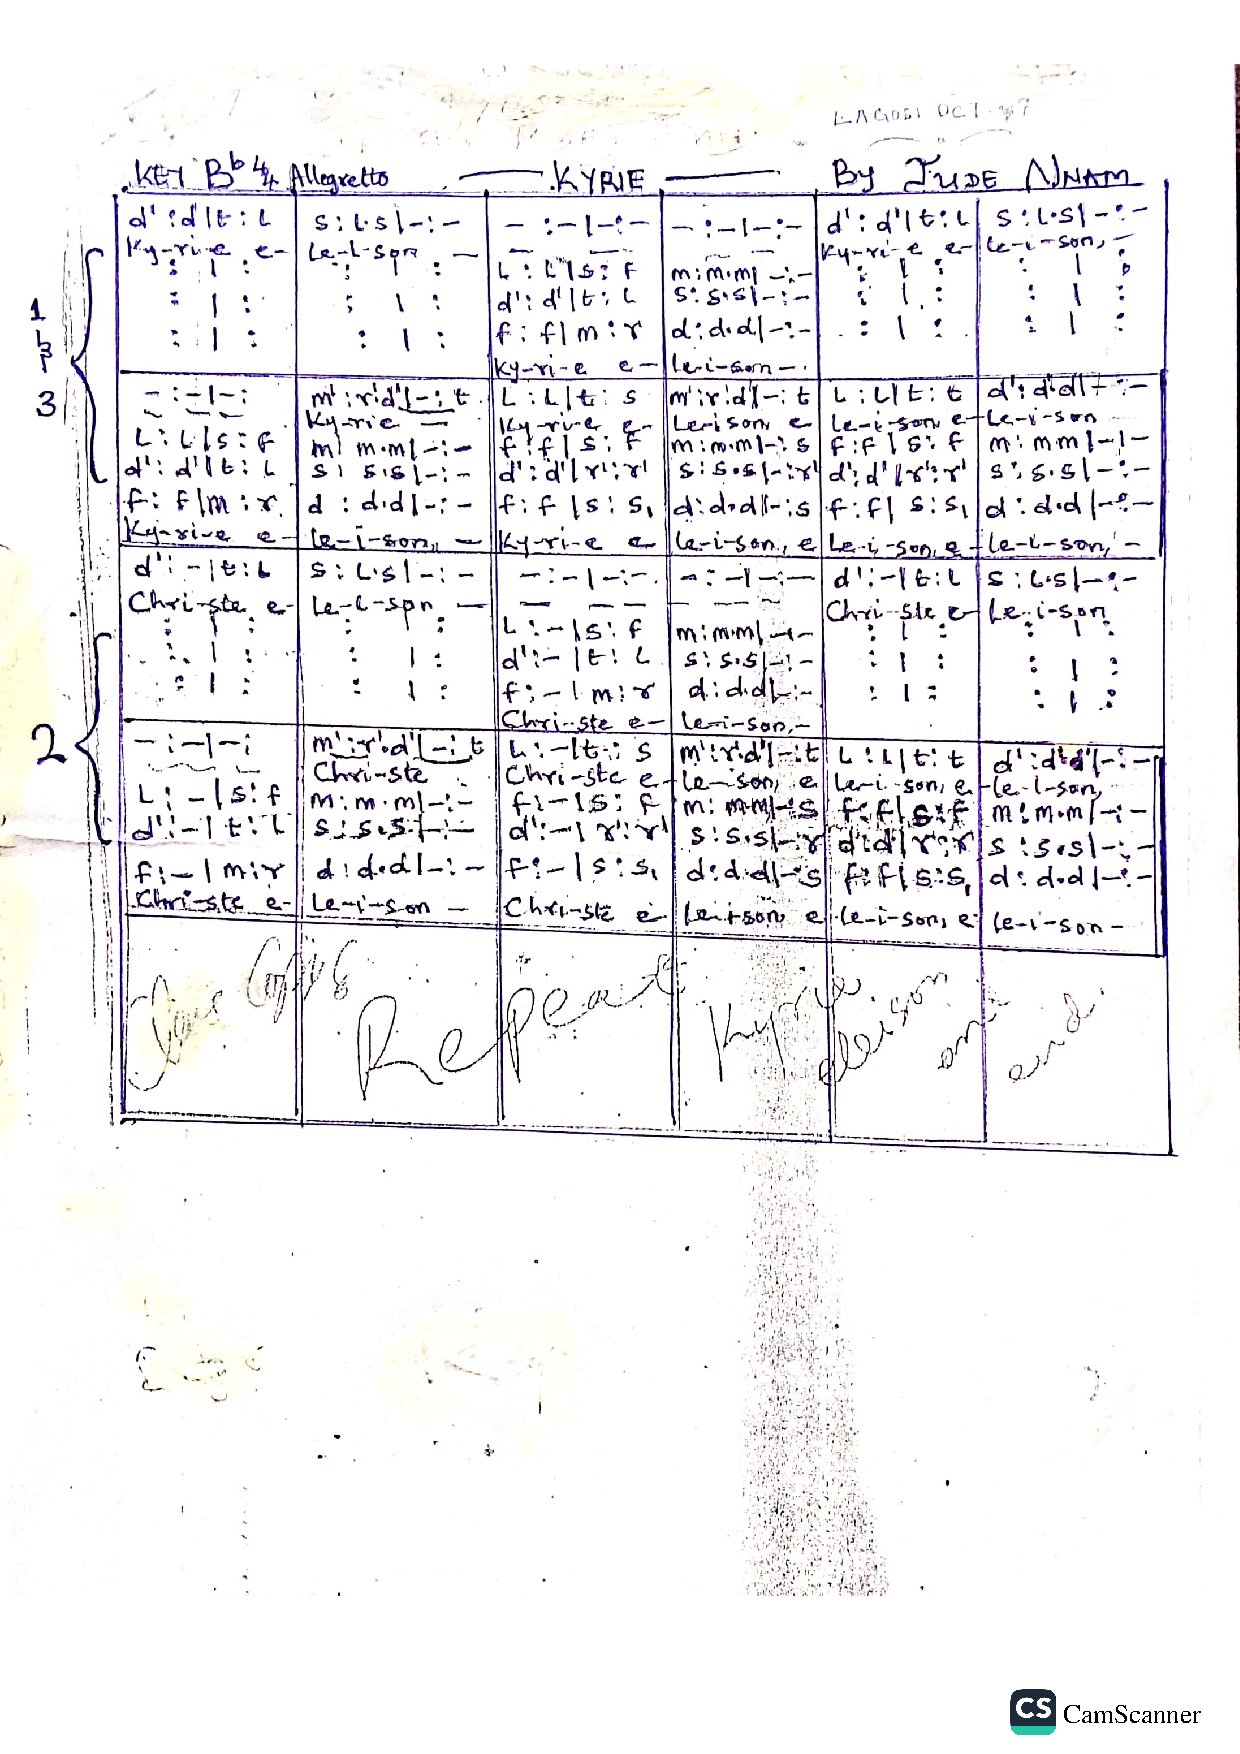 LAGOS! OCT.
KEY Bb 4/4 Allegretto — KYRIE — By JUDE NNAM
d' : d'|t : L   s : L.s|- : -   - : - |- : -   - : - |- : -   d' : d'|t : L   s : L.s|- : -
Ky-ri-e e-   Le-i-son —   — — —   — — —   Ky-ri-e e-   le-i-son, -
: | :   : | :   L : L|s : f   m : m.m|- : -   : | :   : | :
: | :   : | :   d' : d'|t : L   s : s.s|- : -   : | :   : | :
: | :   : | :   f : f|m : r   d : d.d|- : -   : | :   : | :
Ky-ri-e e-   le-i-son -
1
3
- : - |- :   m' : r'.d'|- : t   L : L|t : s   m' : r'.d'|- : t   L : L|t : t   d' : d'.d'|- : -
Ky-rie —   Ky-ri-e e-   Le-ison, e   Le-i-son, e-   Le-i-son
L : L|s : f   m : m.m|- : -   f : f|s : f   m : m.m|- : s   f : f|s : f   m : m.m|-|-
d' : d'|t : L   s : s.s|- : -   d' : d'|r' : r'   s : s.s|- : r'   d' : d'|r' : r'   s : s.s|- : -
f : f|m : r   d : d.d|- : -   f : f|s : s,   d : d.d|- : s   f : f|s : s,   d : d.d|- : -
Ky-ri-e e-   le-i-son, —   Ky-ri-e e-   le-i-son, e   Le-i-son, e-   le-i-son, -
d' : - |t : L   s : L.s|- : -   - : - |- : -   - : - |- : —   d' : - |t : L   s : L.s|- : -
Chri-ste e-   Le-i-son —   — — —   — — —   Chri-ste e-   Le-i-son
: | :   : | :   L : - |s : f   m : m.m|- : -   : | :   : | :
: | :   : | :   d' : - |t : L   s : s.s|- : -   : | :   : | :
: | :   : | :   f : - |m : r   d : d.d|- : -   : | :   : | :
Chri-ste e-   le-i-son, -
2
- : - |- :   m' : r'.d'|- : t   L : - |t : s   m' : r'.d'|- : t   L : L|t : t   d' : d'.d'|- : -
Chri-ste   Chri-ste e-   le-son, e   Le-i-son, e-   Le-i-son,
L : - |s : f   m : m.m|- : -   f : - |s : f   m : m.m|- : s   f : f|s : f   m : m.m|- : -
d' : - |t : L   s : s.s.|- : -   d' : - |r' : r'   s : s.s|- : r   d : d|r : r   s : s.s|- : -
f : - |m : r   d : d.d|- : -   f : - |s : s,   d : d.d|- : s   f : f|s : s,   d : d.d|- : -
Chri-ste e-   Le-i-son -   Chri-ste e   le-i-son, e   le-i-son, e   le-i-son -
Repeat Kyrie eleison and end.
CS CamScanner